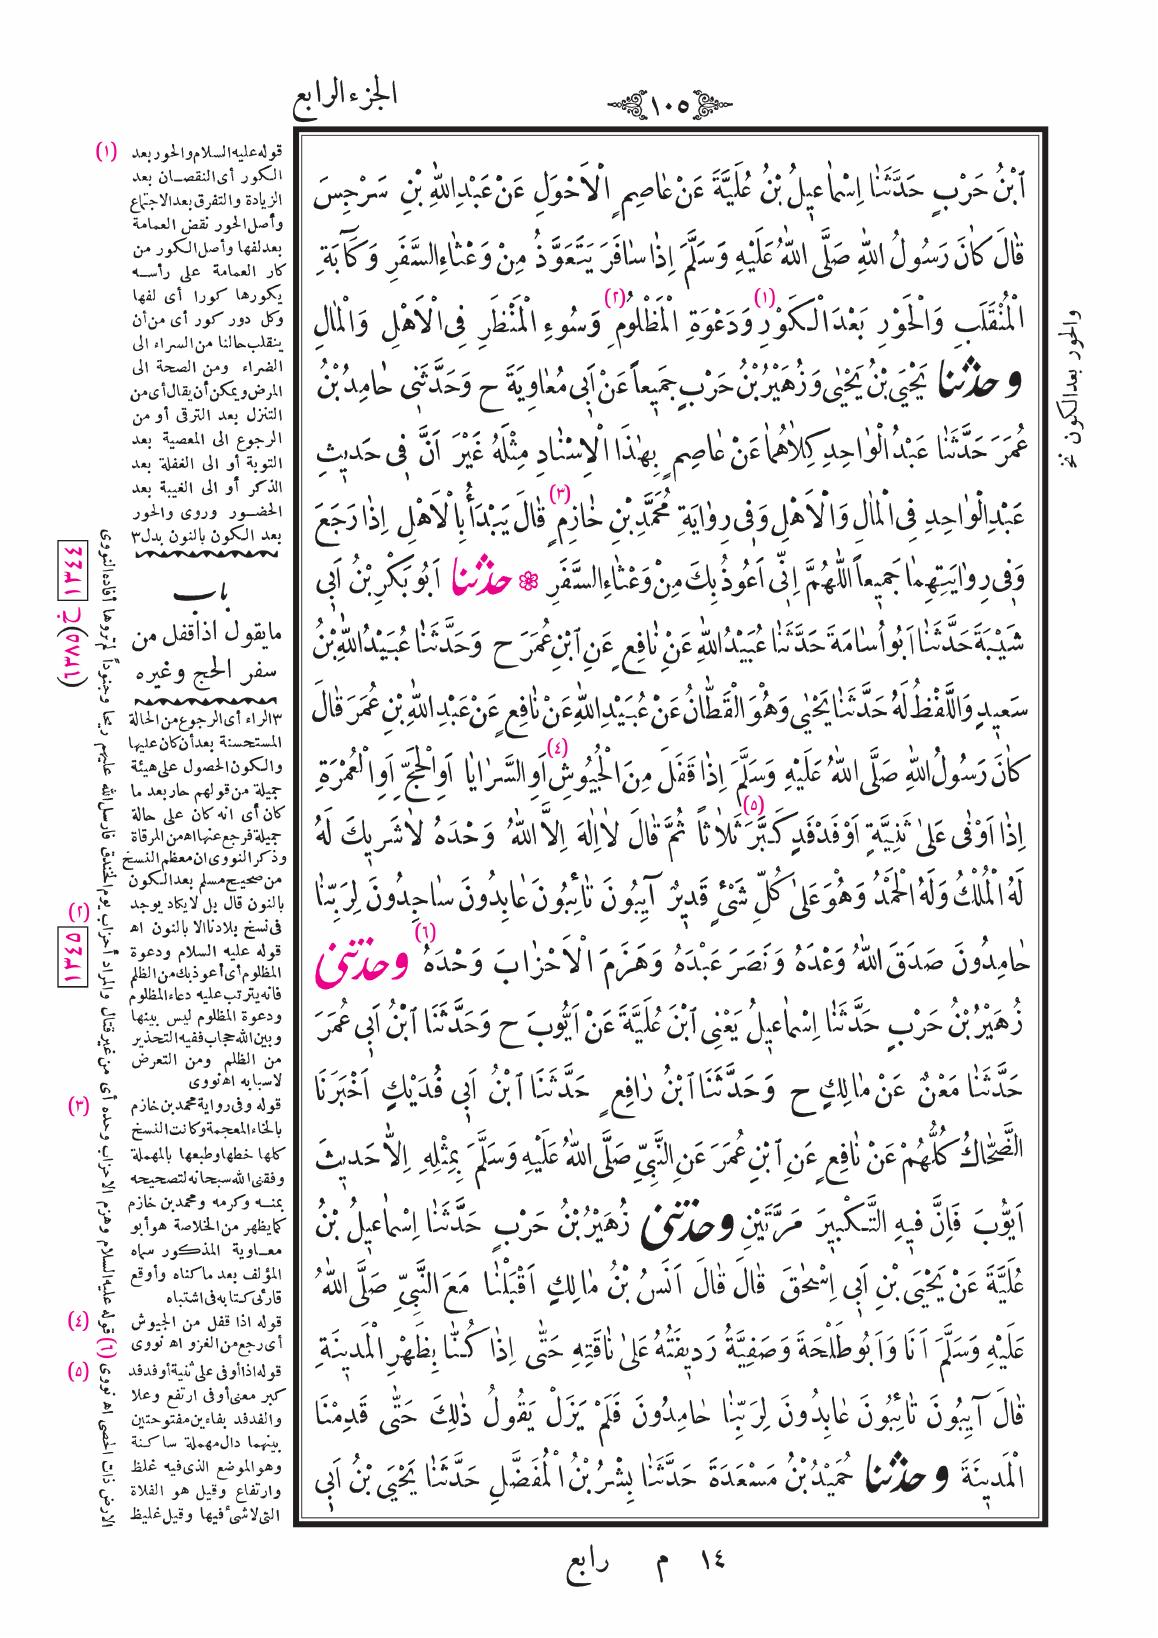 الجزء الرابع
١٠٥
ٱبْنُ حَرْبٍ حَدَّثَنَا اِسْمَاعِيلُ بْنُ عُلَيَّةَ عَنْ عَاصِمٍ الْاَحْوَلِ عَنْ عَبْدِاللهِ بْنِ سَرْجِسَ
قَالَ كَانَ رَسُولُ اللهِ صَلَّى اللهُ عَلَيْهِ وَسَلَّمَ اِذَا سَافَرَ يَتَعَوَّذُ مِنْ وَعْثَاءِ السَّفَرِ وَكَآبَةِ
الْمُنْقَلَبِ وَالْحَوْرِ بَعْدَ الْكَوْرِ (١) وَدَعْوَةِ الْمَظْلُومِ (٢) وَسُوءِ الْمَنْظَرِ فِى الْاَهْلِ وَالْمَالِ
وحدثنا يَحْيَى بْنُ يَحْيٰى وَزُهَيْرُ بْنُ حَرْبٍ جَمِيعاً عَنْ اَبِى مُعَاوِيَةَ ح وَحَدَّثَنِى حَامِدُ بْنُ
عُمَرَ حَدَّثَنَا عَبْدُ الْوَاحِدِ كِلَاهُمَا عَنْ عَاصِمٍ بِهٰذَا الْاِسْنَادِ مِثْلَهُ غَيْرَ اَنَّ فِى حَدِيثِ
عَبْدِالْوَاحِدِ فِى الْمَالِ وَالْاَهْلِ وَفِى رِوَايَةِ مُحَمَّدِ بْنِ خَازِمٍ (٣) قَالَ يَبْدَأُ بِالْاَهْلِ اِذَا رَجَعَ
وَفِى رِوَايَتِهِمَا جَمِيعاً اَللّٰهُمَّ اِنِّى اَعُوذُ بِكَ مِنْ وَعْثَاءِ السَّفَرِ ۞ حدثنا اَبُو بَكْرِ بْنُ اَبِى
شَيْبَةَ حَدَّثَنَا اَبُو اُسَامَةَ حَدَّثَنَا عُبَيْدُ اللهِ عَنْ نَافِعٍ عَنِ ٱبْنِ عُمَرَ ح وَحَدَّثَنَا عُبَيْدُ اللهِ بْنُ
سَعِيدٍ وَاللَّفْظُ لَهُ حَدَّثَنَا يَحْيٰى وَهُوَ الْقَطَّانُ عَنْ عُبَيْدِ اللهِ عَنْ نَافِعٍ عَنْ عَبْدِ اللهِ بْنِ عُمَرَ قَالَ
كَانَ رَسُولُ اللهِ صَلَّى اللهُ عَلَيْهِ وَسَلَّمَ اِذَا قَفَلَ مِنَ الْجُيُوشِ (٤) اَوِ السَّرَايَا اَوِ الْحَجِّ اَوِ الْعُمْرَةِ
اِذَا اَوْفٰى عَلٰى ثَنِيَّةٍ اَوْ فَدْفَدٍ كَبَّرَ (٥) ثَلَاثاً ثُمَّ قَالَ لَا اِلٰهَ اِلَّا اللهُ وَحْدَهُ لَا شَرِيكَ لَهُ
لَهُ الْمُلْكُ وَلَهُ الْحَمْدُ وَهُوَ عَلٰى كُلِّ شَىْءٍ قَدِيرٌ آيِبُونَ تَائِبُونَ عَابِدُونَ سَاجِدُونَ لِرَبِّنَا
حَامِدُونَ صَدَقَ اللهُ وَعْدَهُ وَنَصَرَ عَبْدَهُ وَهَزَمَ الْاَحْزَابَ وَحْدَهُ (٦) وحدثنى
زُهَيْرُ بْنُ حَرْبٍ حَدَّثَنَا اِسْمَاعِيلُ يَعْنِى ٱبْنَ عُلَيَّةَ عَنْ اَيُّوبَ ح وَحَدَّثَنَا ٱبْنُ اَبِى عُمَرَ
حَدَّثَنَا مَعْنٌ عَنْ مَالِكٍ ح وَحَدَّثَنَا ٱبْنُ رَافِعٍ حَدَّثَنَا ٱبْنُ اَبِى فُدَيْكٍ اَخْبَرَنَا
الضَّحَّاكُ كُلُّهُمْ عَنْ نَافِعٍ عَنِ ٱبْنِ عُمَرَ عَنِ النَّبِىِّ صَلَّى اللهُ عَلَيْهِ وَسَلَّمَ بِمِثْلِهِ اِلَّا حَدِيثَ
اَيُّوبَ فَاِنَّ فِيهِ التَّكْبِيرَ مَرَّتَيْنِ وحدثنى زُهَيْرُ بْنُ حَرْبٍ حَدَّثَنَا اِسْمَاعِيلُ بْنُ
عُلَيَّةَ عَنْ يَحْيَى بْنِ اَبِى اِسْحٰقَ قَالَ قَالَ اَنَسُ بْنُ مَالِكٍ اَقْبَلْنَا مَعَ النَّبِىِّ صَلَّى اللهُ
عَلَيْهِ وَسَلَّمَ اَنَا وَاَبُو طَلْحَةَ وَصَفِيَّةُ رَدِيفَتُهُ عَلٰى نَاقَتِهِ حَتّٰى اِذَا كُنَّا بِظَهْرِ الْمَدِينَةِ
قَالَ آيِبُونَ تَائِبُونَ عَابِدُونَ لِرَبِّنَا حَامِدُونَ فَلَمْ يَزَلْ يَقُولُ ذٰلِكَ حَتّٰى قَدِمْنَا
الْمَدِينَةَ وحدثنا حُمَيْدُ بْنُ مَسْعَدَةَ حَدَّثَنَا بِشْرُ بْنُ الْمُفَضَّلِ حَدَّثَنَا يَحْيَى بْنُ اَبِى
والحور بعد الكون نخ
(١) قوله عليه السلام والحور بعد
الكور أى النقصان بعد
الزيادة والتفرق بعد الاجتماع
وأصل الحور نقض العمامة
بعد لفها وأصل الكور من
كار العمامة على رأسه
يكورها كورا أى لفها
وكل دور كور أى من أن
ينقلب حالنا من السراء الى
الضراء ومن الصحة الى
المرض ويمكن أن يقال أى من
التنزل بعد الترقى أو من
الرجوع الى المعصية بعد
التوبة أو الى الغفلة بعد
الذكر أو الى الغيبة بعد
الحضور وروى والحور
بعد الكون بالنون بدل ٣
باب
ما يقول اذا قفل من
سفر الحج وغيره
٣ الراء أى الرجوع من الحالة
المستحسنة بعد أن كان عليها
والكون الحصول على هيئة
جميلة من قولهم حار بعد ما
كان أى انه كان على حالة
جميلة فرجع عنها اه من المرقاة
وذكر النووى ان معظم النسخ
من صحيح مسلم بعد الكون
بالنون قال بل لا يكاد يوجد
فى نسخ بلادنا الا بالنون اه
(٢) قوله عليه السلام ودعوة
المظلوم أى أعوذ بك من الظلم
فانه يترتب عليه دعاء المظلوم
ودعوة المظلوم ليس بينها
وبين الله حجاب ففيه التحذير
من الظلم ومن التعرض
لاسبابه اه نووى
(٣) قوله وفى رواية محمد بن خازم
بالخاء المعجمة وكانت النسخ
كلها خطها وطبعها بالمهملة
وفقنى الله سبحانه لتصحيحه
بمنه وكرمه ومحمد بن خازم
كما يظهر من الخلاصة هو أبو
معاوية المذكور سماه
المؤلف بعد ما كناه وأوقع
قارئى كتابه فى اشتباه
(٤) قوله اذا قفل من الجيوش
أى رجع من الغزو اه نووى
(٥) قوله اذا أوفى على ثنية أو فدفد
كبر معنى أوفى ارتفع وعلا
والفدفد بفاءين مفتوحتين
بينهما دال مهملة ساكنة
وهو الموضع الذى فيه غلظ
وارتفاع وقيل هو الفلاة
التى لا شىء فيها وقيل غليظ
الارض ذات الحصى اه نووى (٦) قوله عليه السلام وهزم الاحزاب وحده أى من غير قتال والمراد أحزاب يوم الخندق فارسل الله عليهم ريحا وجنوداً لم تروها أفاده النووى
١٣٤٤ ج
(١٣٤٥)
١٣٤٥
١٤ م رابع